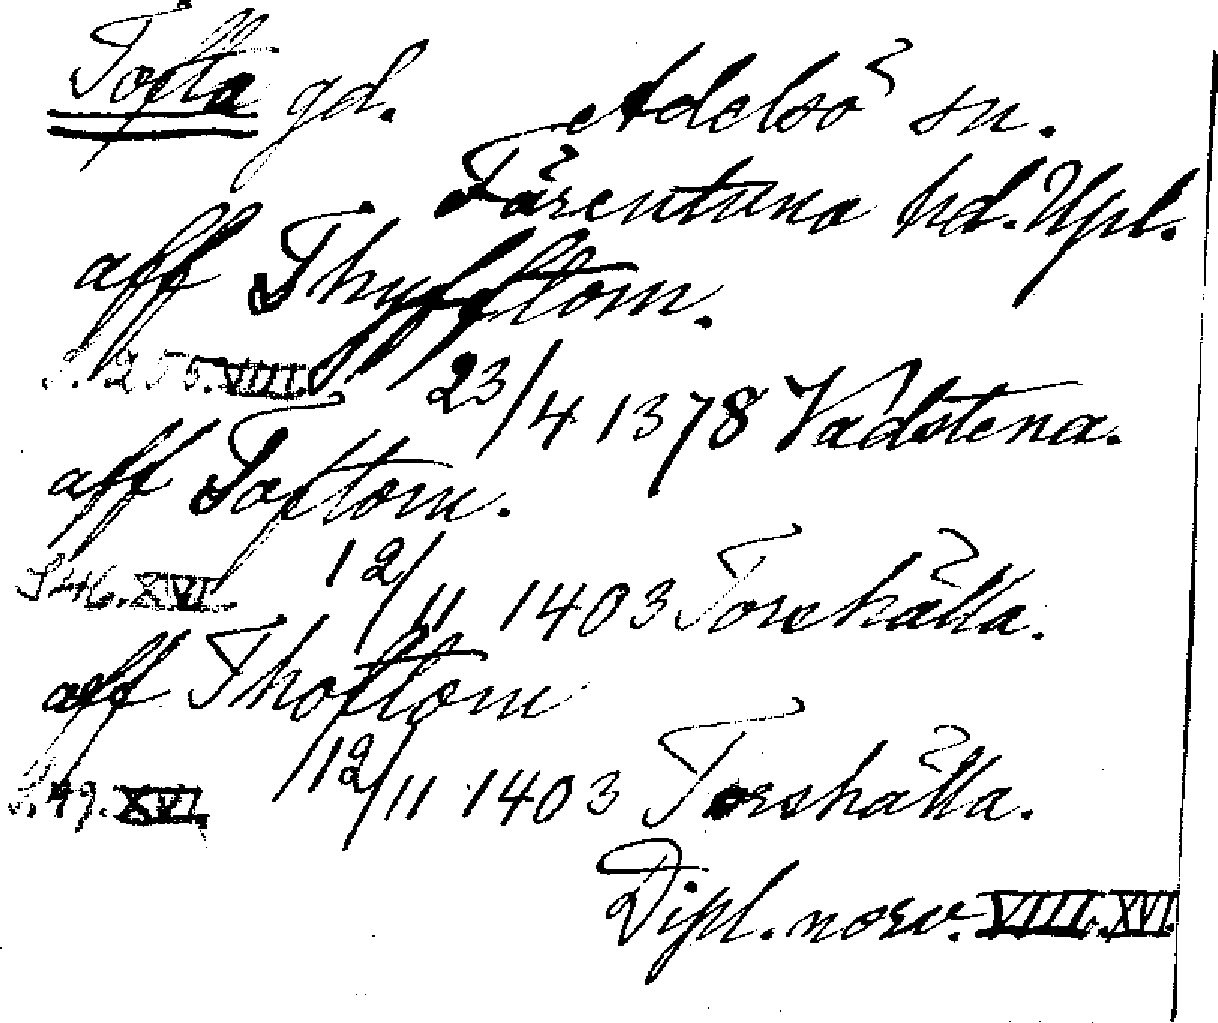 Tofta gd. Adelsö sn.
Färentuna hd. Upl.
aff Thyfftom.
S. 255. VIII. 23/4 1378 Vadstena.
aff Toftom.
S 46. XVI. 12/11 1403 Torshälla.
aff Thoftom
S. 49. XVI. 12/11 1403 Torshälla.
Dipl. norv. VIII. XVI.